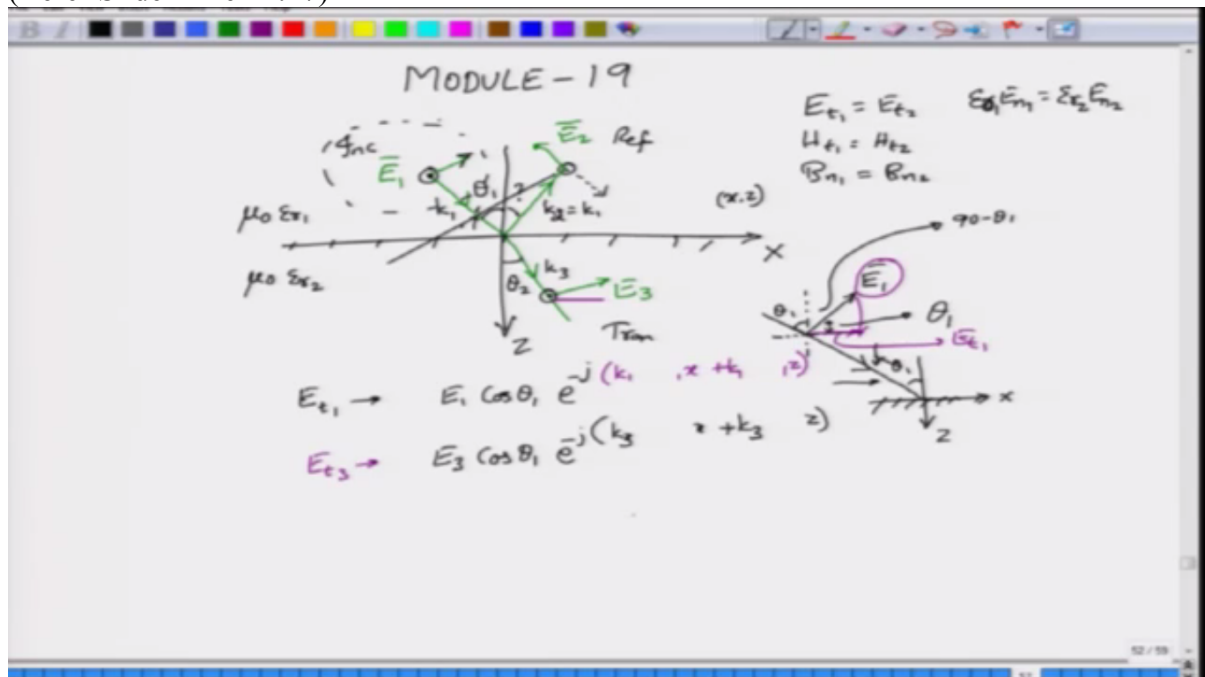 MODULE-19
Ēt₁ = Ēt₂ εr₁Ēn₁ = εr₂Ēn₂
Ht₁ = Ht₂
Bn₁ = Bn₂
Inc
Ē₁
Ē₂ Ref
θ₁ ?
k₁
k₂=k₁
(x.z)
μ₀ εr₁
X
μ₀ εr₂
θ₂
k₃
Ē₃
Z
Tran
90-θ₁
Ē₁
θ₁
θ₁
Ēt₁
θ₁
x
z
Et₁ → E₁ Cosθ₁ e^-j(k₁ ,x +k₁ ,z)
Et₃ → E₃ Cosθ₁ e^-j(k₃ x +k₃ z)
52 / 59